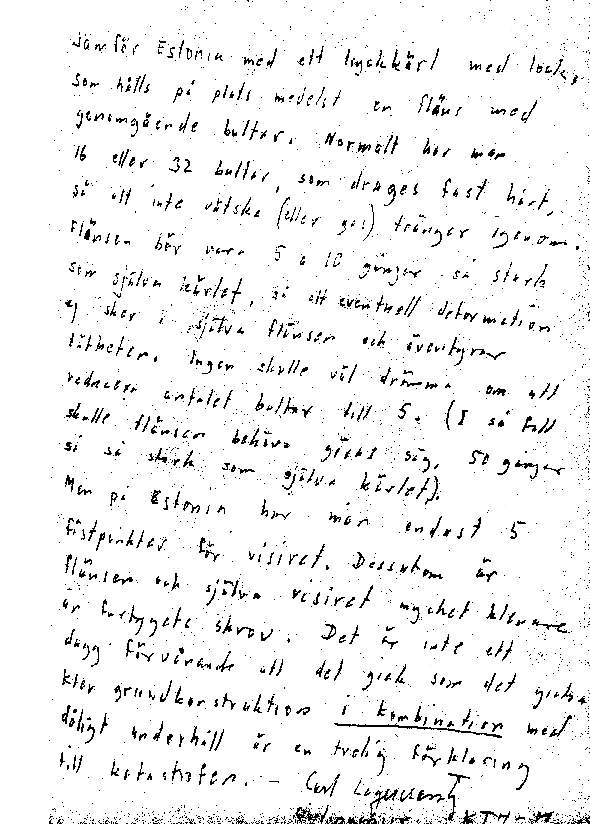 Jämför Estonia med ett tryckkärl med lock,
som hålls på plats medelst en fläns med
genomgående bultar. Normalt har man
16 eller 32 bultar, som drages fast hårt,
så att inte vätska (eller gas) tränger igenom.
Flänsen bör vara 5 a 10 gånger så stark
som själva kärlet, så att eventuell deformation
ej sker i själva flänsen och äventyrar
tätheten. Ingen skulle väl drömma om att
reducera antalet bultar till 5. (I så fall
skulle flänsen behöva göras säg, 50 gånger
så stark som själva kärlet).
Men på Estonia har man endast 5
fästpunkter för visiret. Dessutom är
flänsen och själva visiret mycket klenare
än fartygets skrov. Det är inte ett
dugg förvånande att det gick som det gick.
klen grundkonstruktion i kombination med
dåligt underhåll är en trolig förklaring
till katastrofen. - Carl
KTH